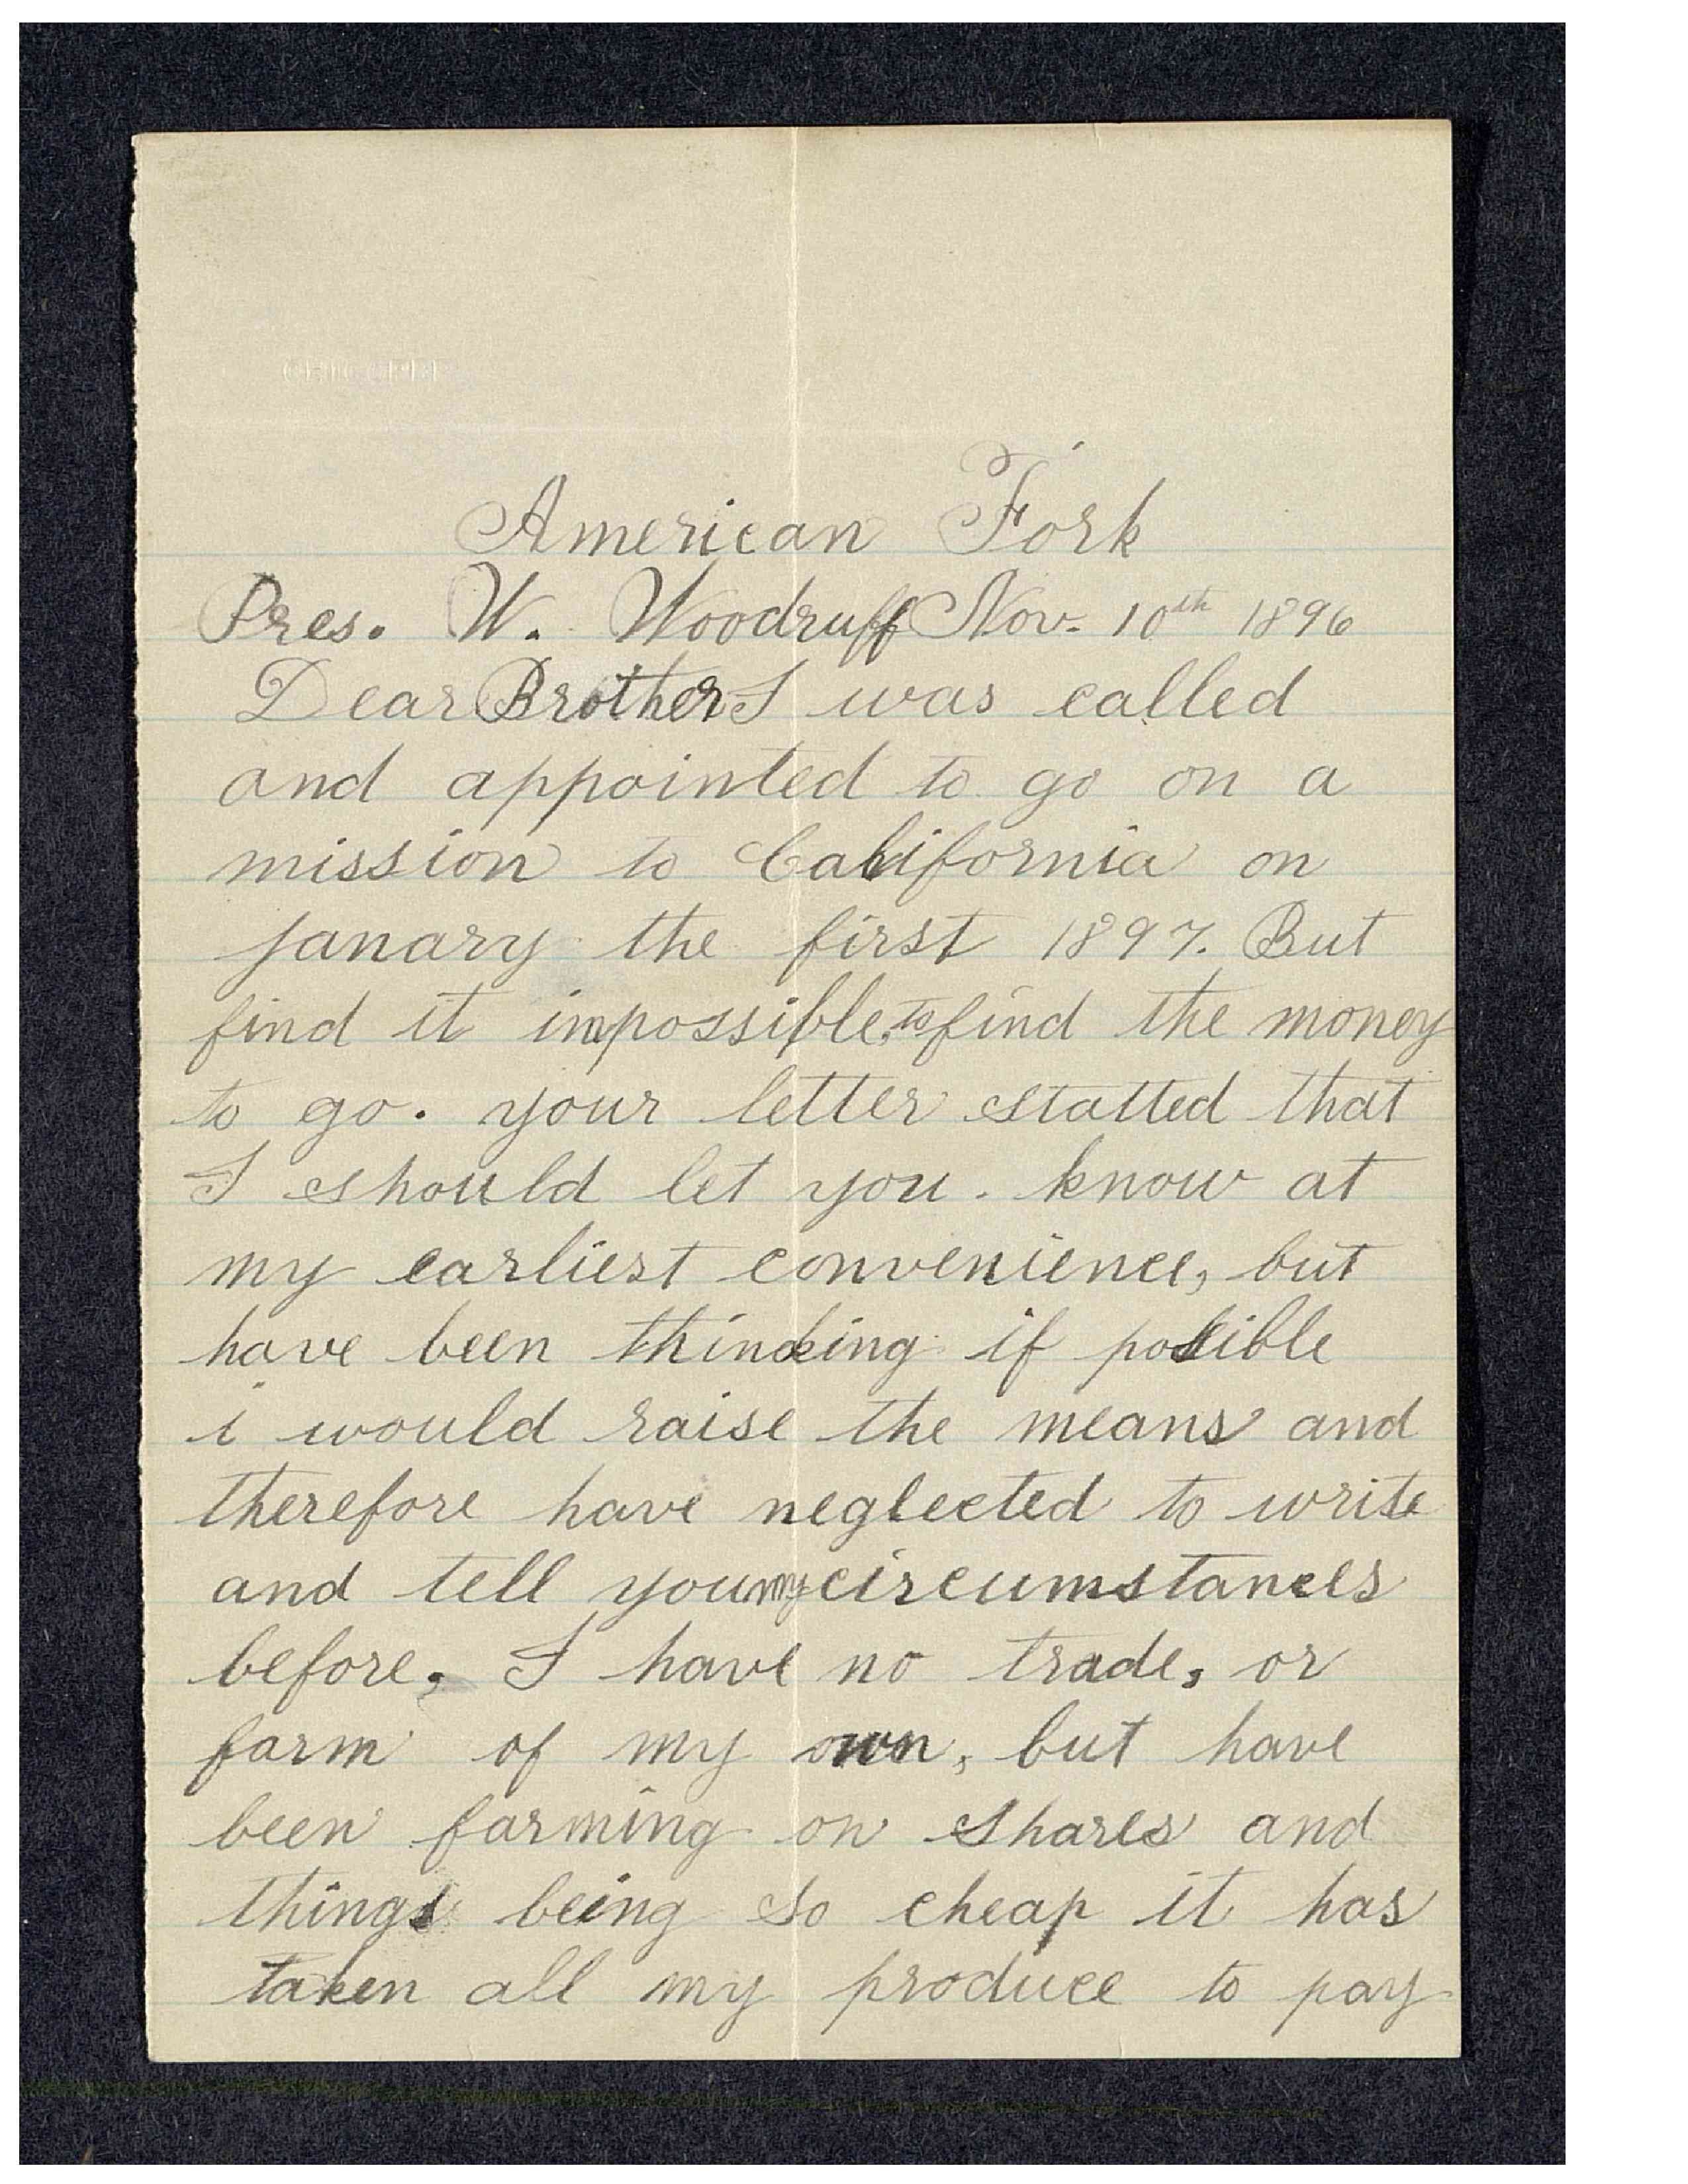 American Fork
Pres. W. Woodruff Nov. 10th 1896
Dear Brother I was called
and appointed to go on a
mission to California on
janary the first 1897. But
find it impossible, to find the money
to go. your letter statted that
I should let you. know at
my earliest convenience, but
have been thinking if possible
i would raise the means and
therefore have neglected to write
and tell you my circumstances
before, I have no trade, or
farm of my own, but have
been farming on shares and
things being so cheap it has
taken all my produce to pay